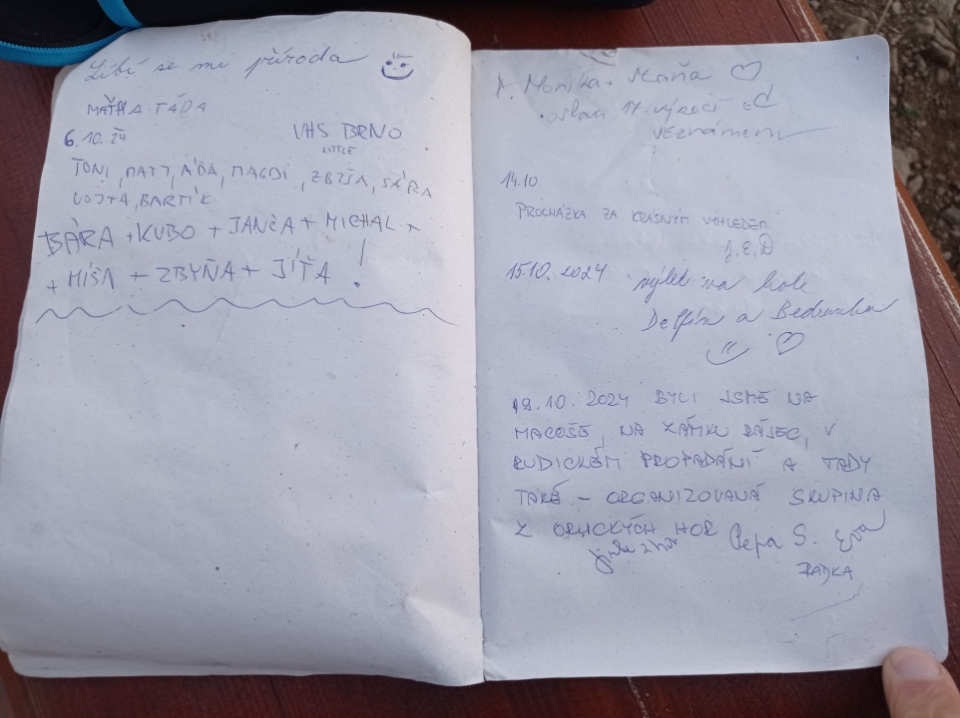 Líbí se mi příroda
MAŤHA TÁĎA
6.10.24
VHS BRNO
LITTLE
TONI, MATT, ÁĎA, MAGDI, ZBÝŠA, SÁRA
VOJTA, BARTÍK
BÁRA + KUBO + JANČA + MICHAL +
+ MÍŠA + ZBYŇA + JÍŤA !
Monika + Maňa
oslava 17. výročí od
seznámení
14.10.
PROCHÁZKA ZA KRÁSNÝM VÝHLEDEM
J, E, D
15.10.2024 výlet na kole
Delfín a Bedrunka
19.10.2024 BYLI JSME NA
MACOŠE, NA ZÁMKU RÁJEC, V
RUDICKÉM PROPADÁNÍ A TADY
TAKÉ - ORGANIZOVANÁ SKUPINA
Z ORLICKÝCH HOR Pepa S. Eva
RADKA